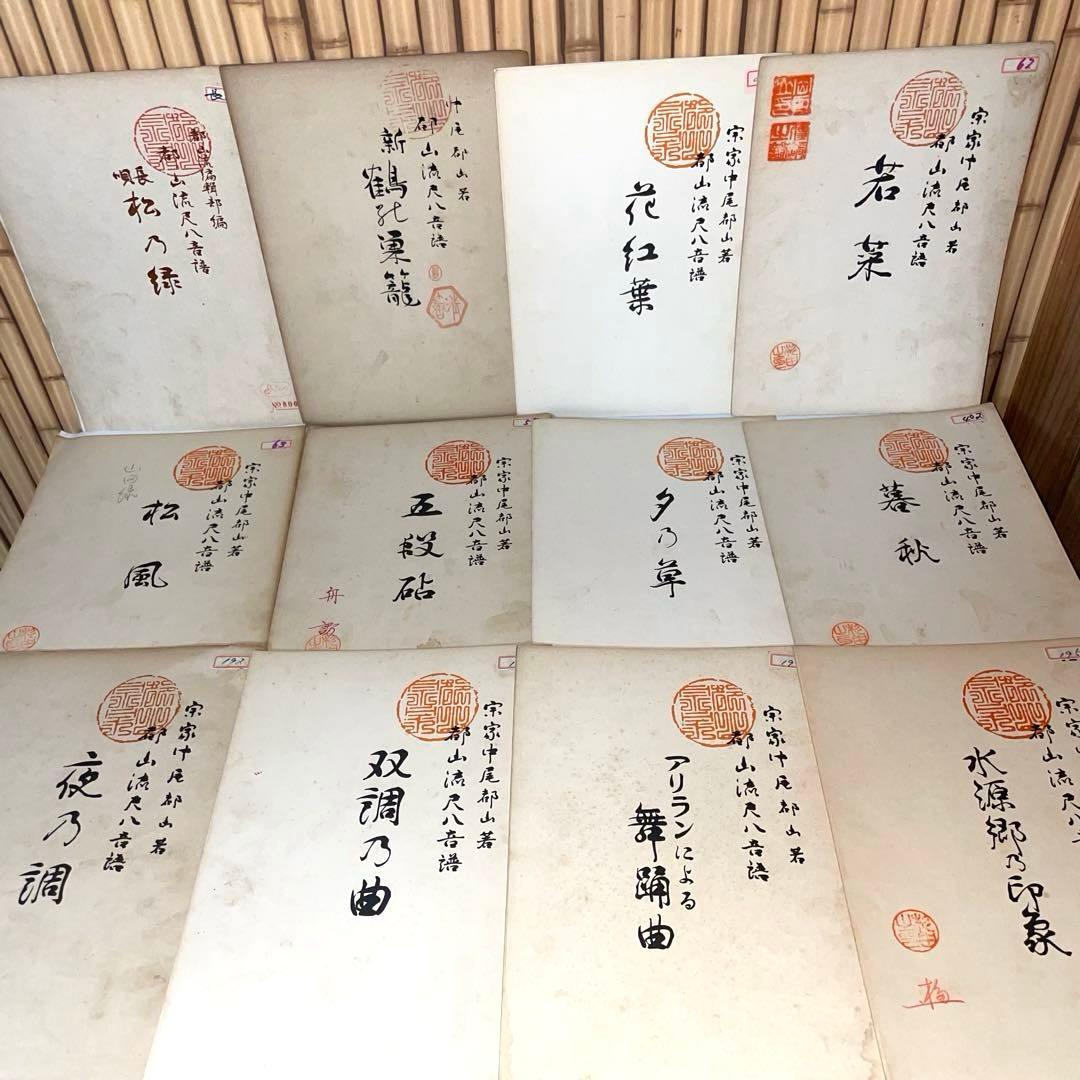 長
都山流編輯部編
都山流尺八音譜
長唄
松乃緑
中尾都山著
都山流尺八音譜
新鶴の巣籠
宗家中尾都山著
都山流尺八音譜
花紅葉
62
宗家中尾都山著
都山流尺八音譜
若菜
宗家中尾都山著
都山流尺八音譜
松風
宗家中尾都山著
都山流尺八音譜
五段砧
宗家中尾都山著
都山流尺八音譜
夕乃草
402
宗家中尾都山著
都山流尺八音譜
暮秋
193
宗家中尾都山著
都山流尺八音譜
夜乃調
宗家中尾都山著
都山流尺八音譜
双調乃曲
宗家中尾都山著
都山流尺八音譜
アリランによる
舞踊曲
宗家中尾都山
都山流尺八
水源郷乃印象